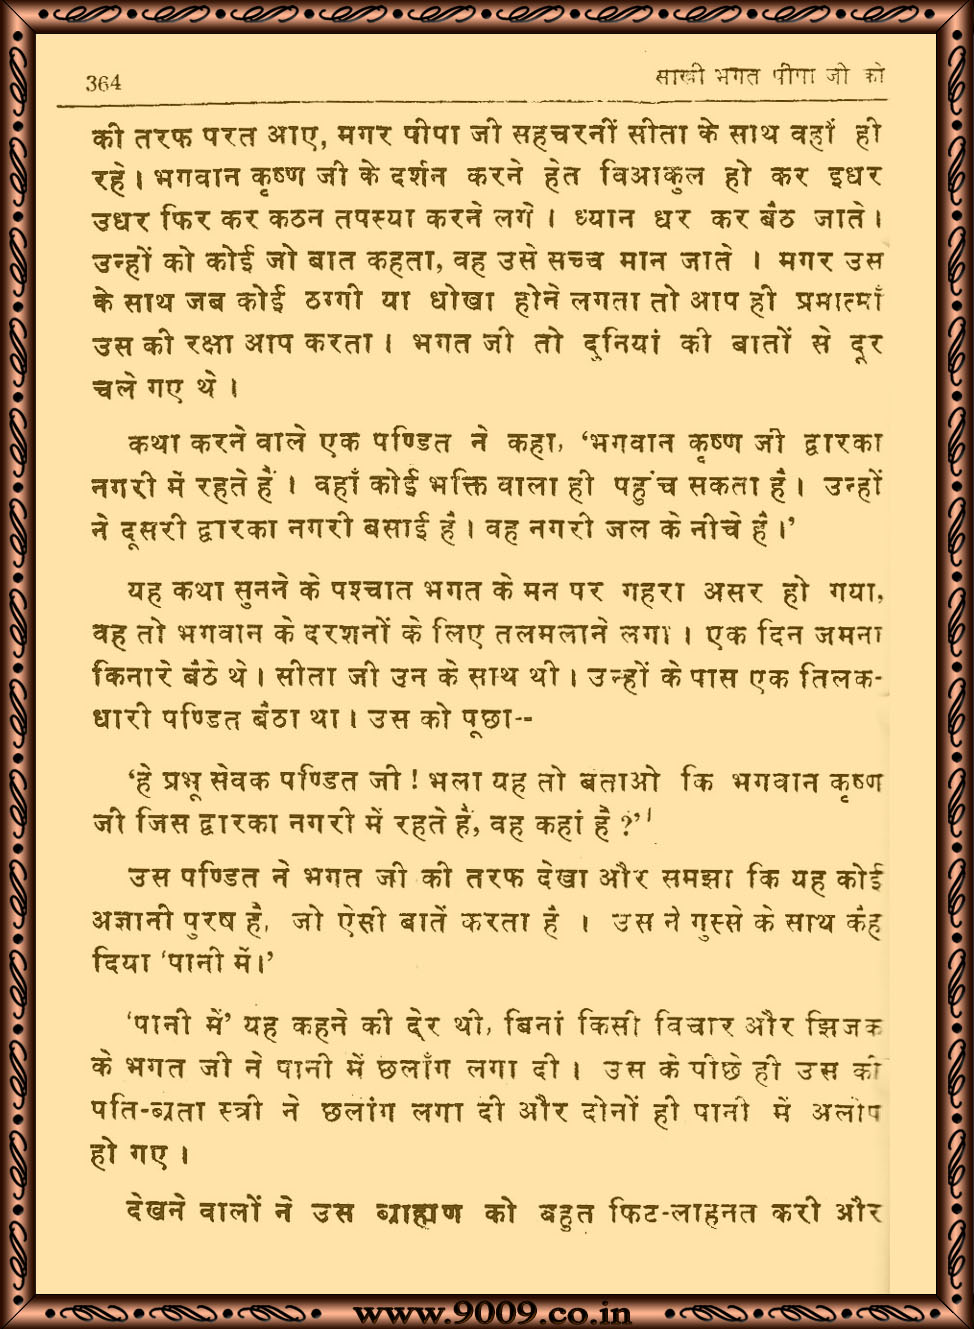 364
साखी भगत पीपा जी की
की तरफ परत आए, मगर पीपा जी सहचरनीं सीता के साथ वहाँ ही
रहे। भगवान कृष्ण जी के दर्शन करने हेत विआकुल हो कर इधर
उधर फिर कर कठन तपस्या करने लगे। ध्यान धर कर बैठ जाते।
उन्हों को कोई जो बात कहता, वह उसे सच्च मान जाते । मगर उस
के साथ जब कोई ठग्गी या धोखा होने लगता तो आप ही प्रमात्माँ
उस की रक्षा आप करता। भगत जी तो दुनियां की बातों से दूर
चले गए थे ।
कथा करने वाले एक पण्डित ने कहा, ‘भगवान कृष्ण जी द्वारका
नगरी में रहते हैं । वहाँ कोई भक्ति वाला ही पहुंच सकता है। उन्हों
ने दूसरी द्वारका नगरी बसाई है। वह नगरी जल के नीचे है।’
यह कथा सुनने के पश्चात भगत के मन पर गहरा असर हो गया,
वह तो भगवान के दरशनों के लिए तलमलाने लगा। एक दिन जमना
किनारे बैठे थे। सीता जी उन के साथ थी। उन्हों के पास एक तिलक-
धारी पण्डित बैठा था। उस को पूछा--
‘हे प्रभू सेवक पण्डित जी ! भला यह तो बताओ कि भगवान कृष्ण
जी जिस द्वारका नगरी में रहते हैं, वह कहां है ?’
उस पण्डित ने भगत जी की तरफ देखा और समझा कि यह कोई
अज्ञानी पुरष है, जो ऐसी बातें करता है । उस ने गुस्से के साथ कह
दिया ‘पानी में।’
‘पानी में’ यह कहने की देर थी, बिनां किसी विचार और झिजक
के भगत जी ने पानी में छलाँग लगा दी। उस के पीछे ही उस की
पति-ब्रता स्त्री ने छलांग लगा दी और दोनों ही पानी में अलोप
हो गए ।
देखने वालों ने उस ब्राह्मण को बहुत फिट-लाहनत करी और
www.9009.co.in